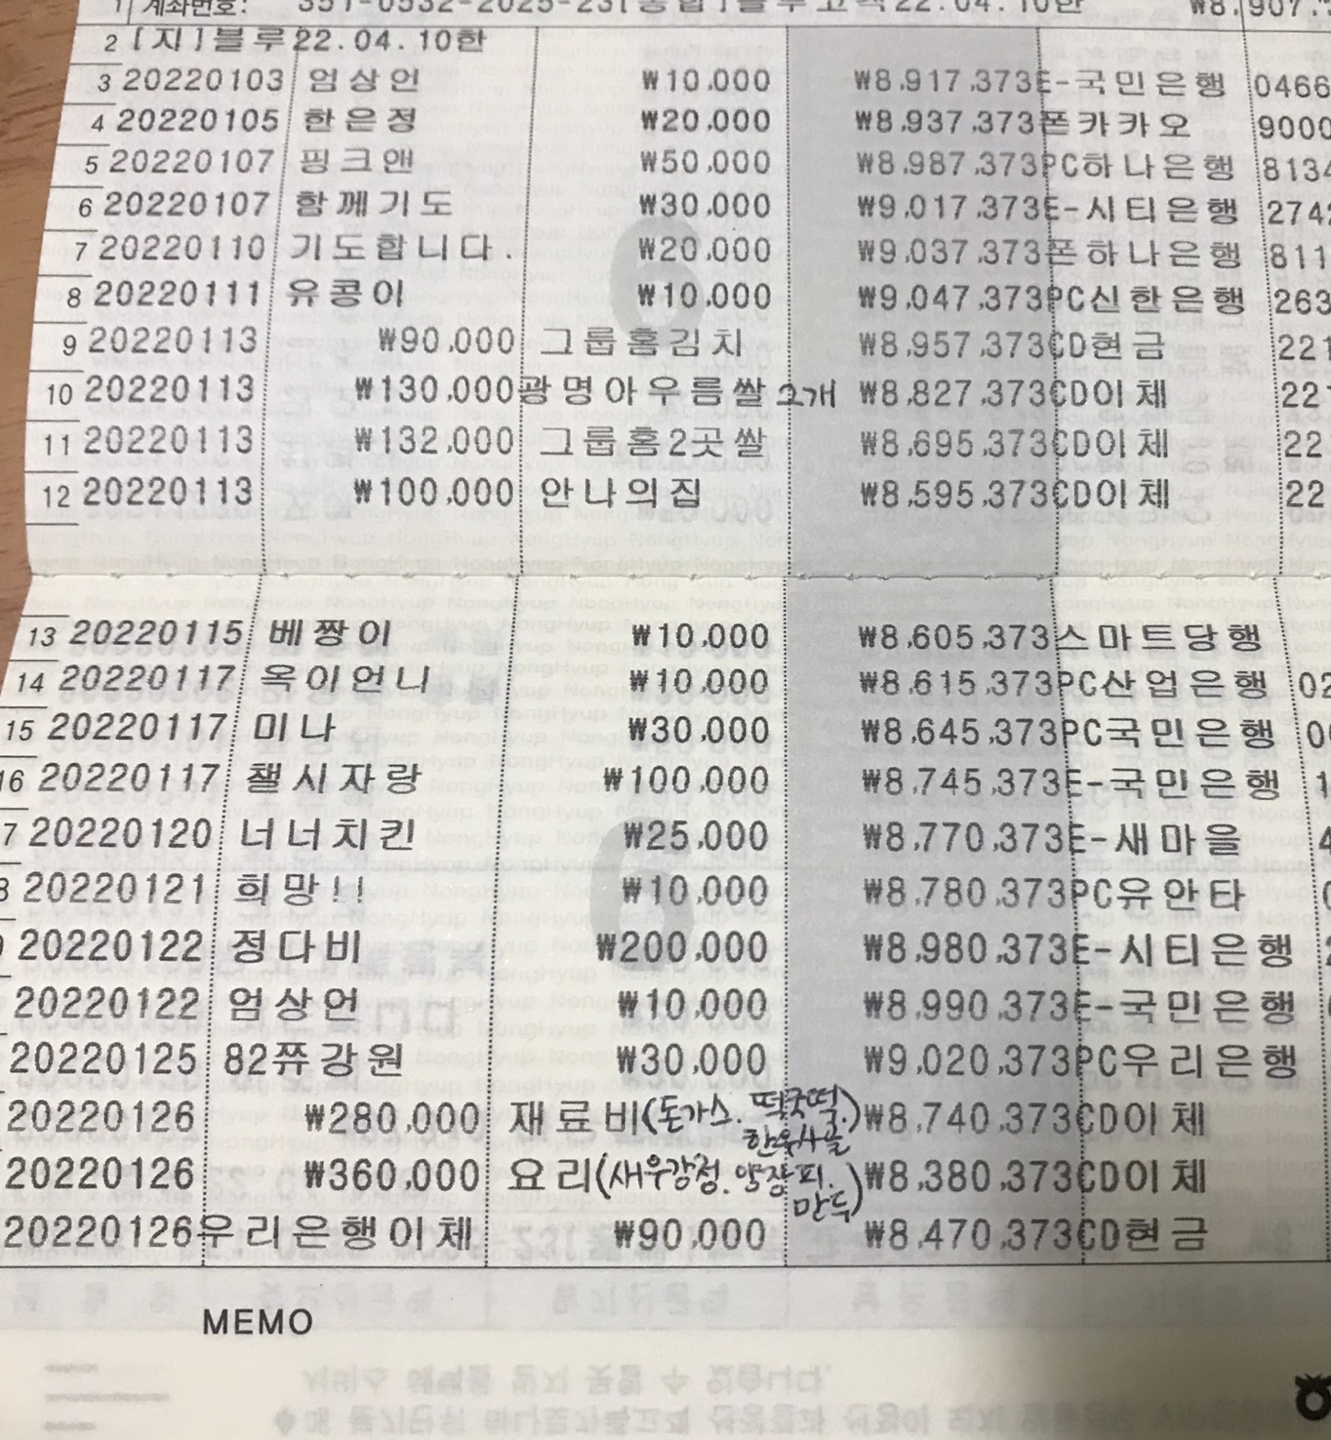 계좌번호: 351-0532-2025-23[종합]블루고객22.04.10한 ₩8,907,
2 [지]블루22.04.10한
3 20220103 엄상언 ₩10,000 ₩8,917,373 E-국민은행 0466
4 20220105 한은정 ₩20,000 ₩8,937,373 폰카카오 9000
5 20220107 핑크앤 ₩50,000 ₩8,987,373 PC하나은행 8134
6 20220107 함께기도 ₩30,000 ₩9,017,373 E-시티은행 2742
7 20220110 기도합니다. ₩20,000 ₩9,037,373 폰하나은행 811
8 20220111 유콩이 ₩10,000 ₩9,047,373 PC신한은행 263
9 20220113 ₩90,000 그룹홈김치 ₩8,957,373 CD현금 221
10 20220113 ₩130,000 광명아우름쌀 2개 ₩8,827,373 CD이체 22
11 20220113 ₩132,000 그룹홈2곳쌀 ₩8,695,373 CD이체 22
12 20220113 ₩100,000 안나의집 ₩8,595,373 CD이체 22
13 20220115 베짱이 ₩10,000 ₩8,605,373 스마트당행
14 20220117 옥이언니 ₩10,000 ₩8,615,373 PC산업은행 02
15 20220117 미나 ₩30,000 ₩8,645,373 PC국민은행
16 20220117 챌시자랑 ₩100,000 ₩8,745,373 E-국민은행 1
7 20220120 너너치킨 ₩25,000 ₩8,770,373 E-새마을 4
8 20220121 희망!! ₩10,000 ₩8,780,373 PC유안타
20220122 정다비 ₩200,000 ₩8,980,373 E-시티은행
20220122 엄상언 ₩10,000 ₩8,990,373 E-국민은행
20220125 82쮸강원 ₩30,000 ₩9,020,373 PC우리은행
20220126 ₩280,000 재료비(돈가스. 떡국떡. 한우사골) ₩8,740,373 CD이체
20220126 ₩360,000 요리(새우강정. 양장피. 만두) ₩8,380,373 CD이체
20220126 우리은행이체 ₩90,000 ₩8,470,373 CD현금
MEMO